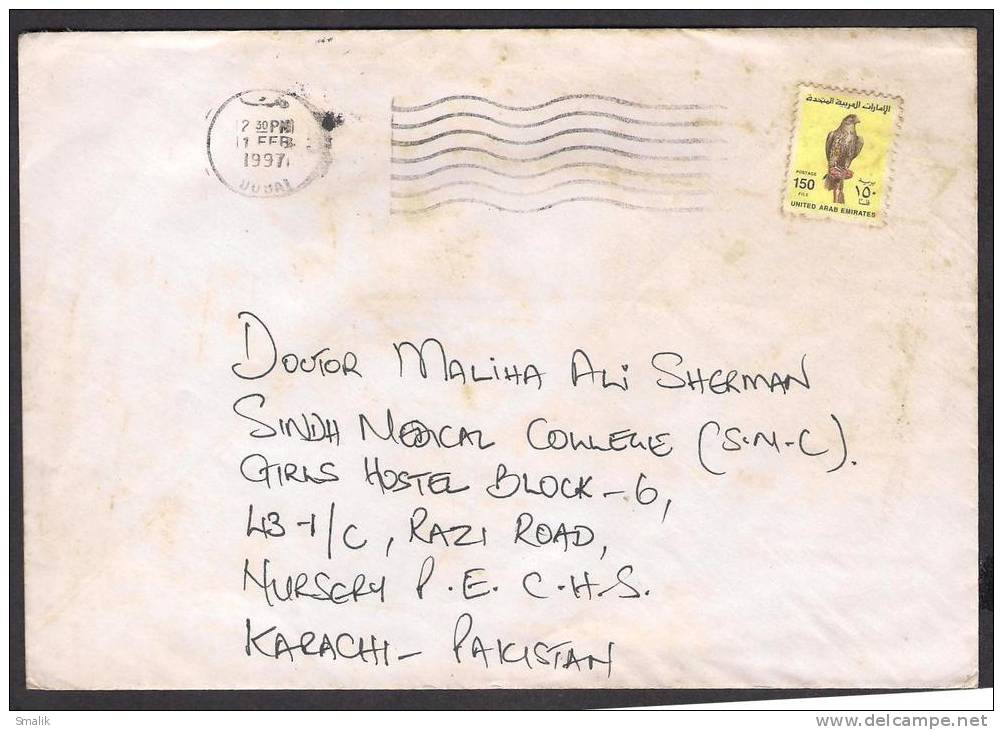 2 30 PM
1 FEB
1997
DUBAI
الإمارات العربية المتحدة
POSTAGE
150
FILS
١٥٠
UNITED ARAB EMIRATES
DOCTOR MALIHA ALI SHERMAN
SINDH MEDICAL COLLEGE (S.M.C).
GIRLS HOSTEL BLOCK-6,
43-1/C, RAZI ROAD,
NURSERY P.E.C.H.S.
KARACHI- PAKISTAN
Smalik
www.delcampe.net